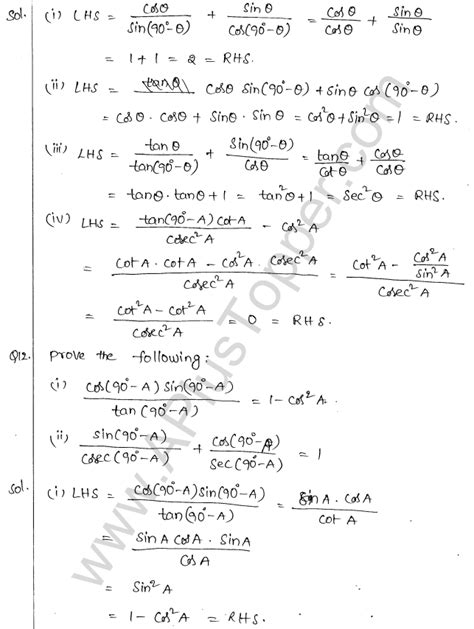 Sol. (i) LHS = cosθ/sin(90°-θ) + sinθ/cos(90°-θ) = cosθ/cosθ + sinθ/sinθ
= 1+1 = 2 = RHS.
(ii) LHS = cosθ sin(90°-θ) + sinθ cos(90°-θ)
= cosθ · cosθ + sinθ · sinθ = cos²θ + sin²θ = 1 = RHS.
(iii) LHS = tanθ/tan(90°-θ) + sin(90°-θ)/cosθ = tanθ/cotθ + cosθ/cosθ
= tanθ · tanθ + 1 = tan²θ + 1 = sec²θ = RHS.
(iv) LHS = tan(90°-A) cotA/cosec²A - cos²A
= cotA · cotA - cos²A · cosec²A/cosec²A = cot²A - cos²A/sin²A/cosec²A
= cot²A - cot²A/cosec²A = 0 = RHS.
Q12. Prove the following:
(i) cos(90°-A) sin(90°-A)/tan(90°-A) = 1 - cos²A.
(ii) sin(90°-A)/cosec(90°-A) + cos(90°-A)/sec(90°-A) = 1
Sol. (i) LHS = cos(90°-A) sin(90°-A)/tan(90°-A) = sinA · cosA/cotA
= sinA cosA · sinA/cosA
= sin²A
= 1 - cos²A = RHS.
www.APlusTopper.com